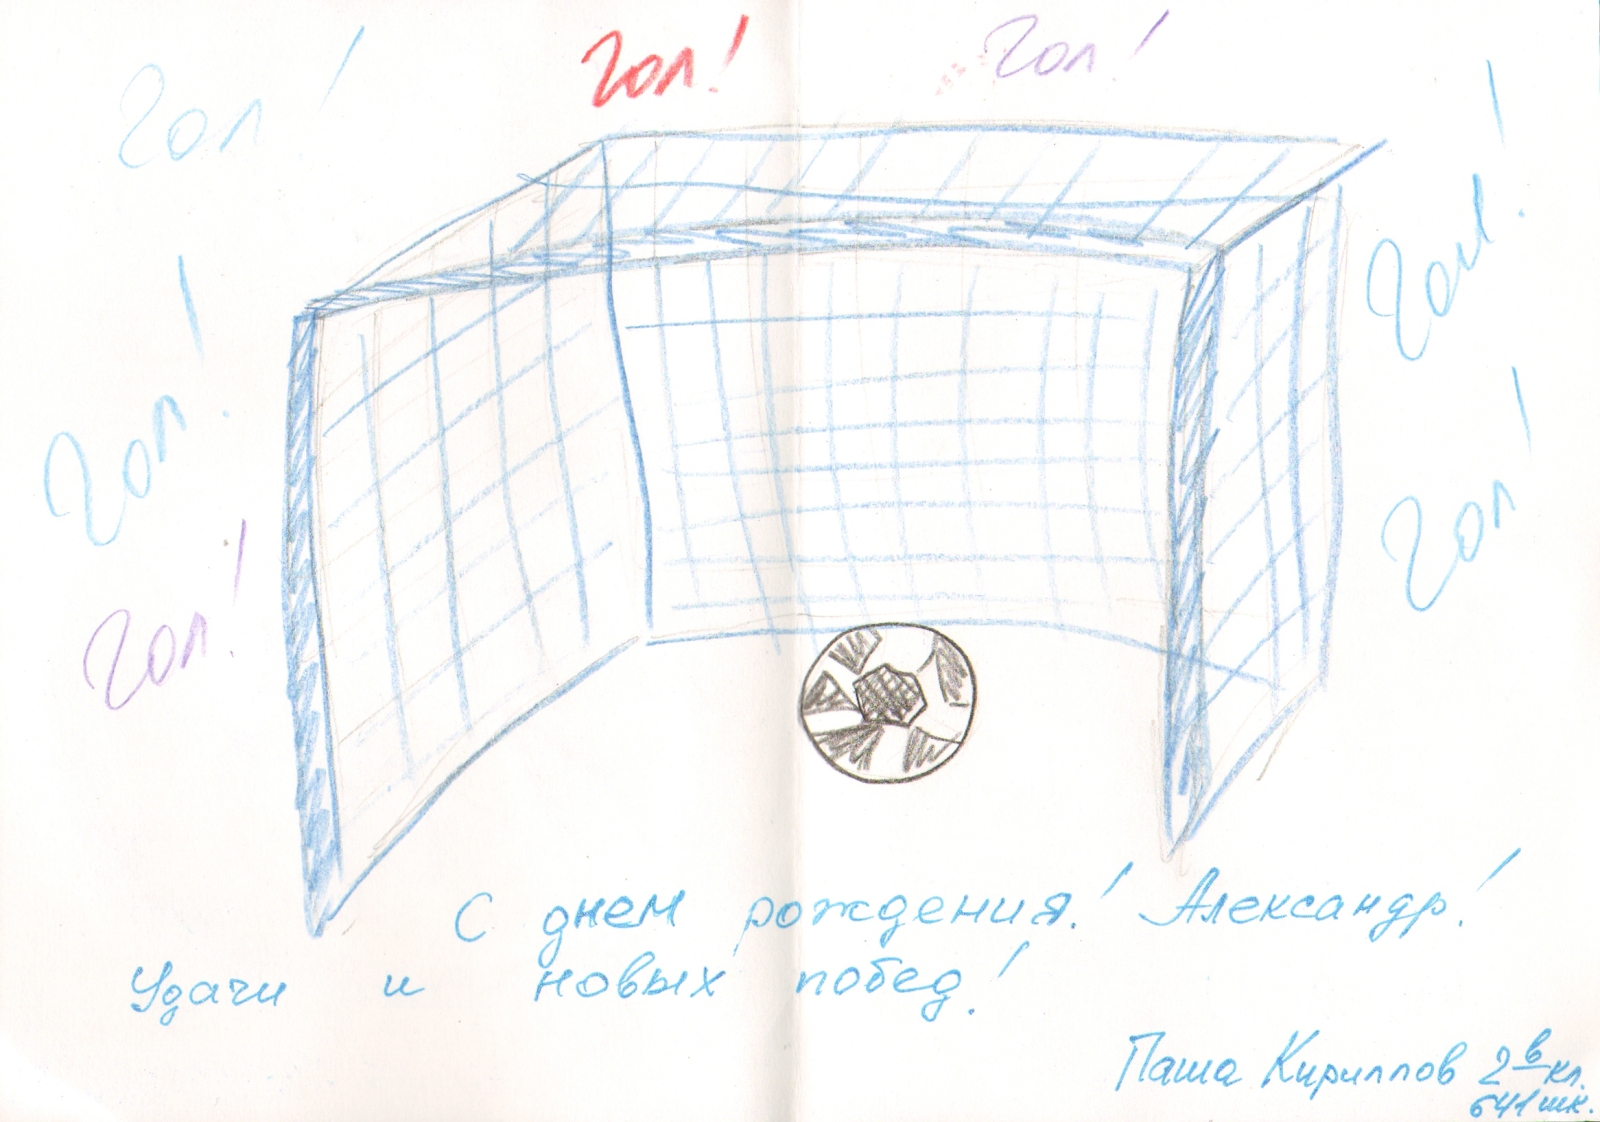 Гол!
Гол!
Гол!
Гол!
Гол!
Гол!
Гол!
Гол!
С днем рождения! Александр!
Удачи и новых побед!
Паша Кириллов 2 в кл.
641 шк.